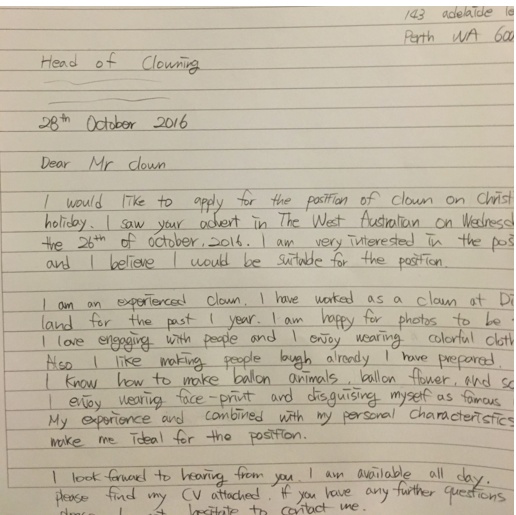 143 adelaide
Perth WA
Head of Clowning
28th October 2016
Dear Mr clown
I would like to apply for the position of clown on Christ
holiday. I saw your advert in The West Australian on Wednesd
the 26th of October, 2016. I am very interested in the pos
and I believe I would be suitable for the position
I am an experienced clown. I have worked as a clown at Di
land for the past 1 year. I am happy for photos to be
I love engaging with people and I enjoy wearing colorful cloth
Also I like making people laugh already I have prepared.
I know how to make ballon animals, ballon flower, and so
I enjoy wearing face-print and disguising myself as famous
My experience and combined with my personal characteristics
make me ideal for the position.
I look forward to hearing from you. I am available all day.
Please find my CV attached. If you have any further questions
hesitate to contact me.